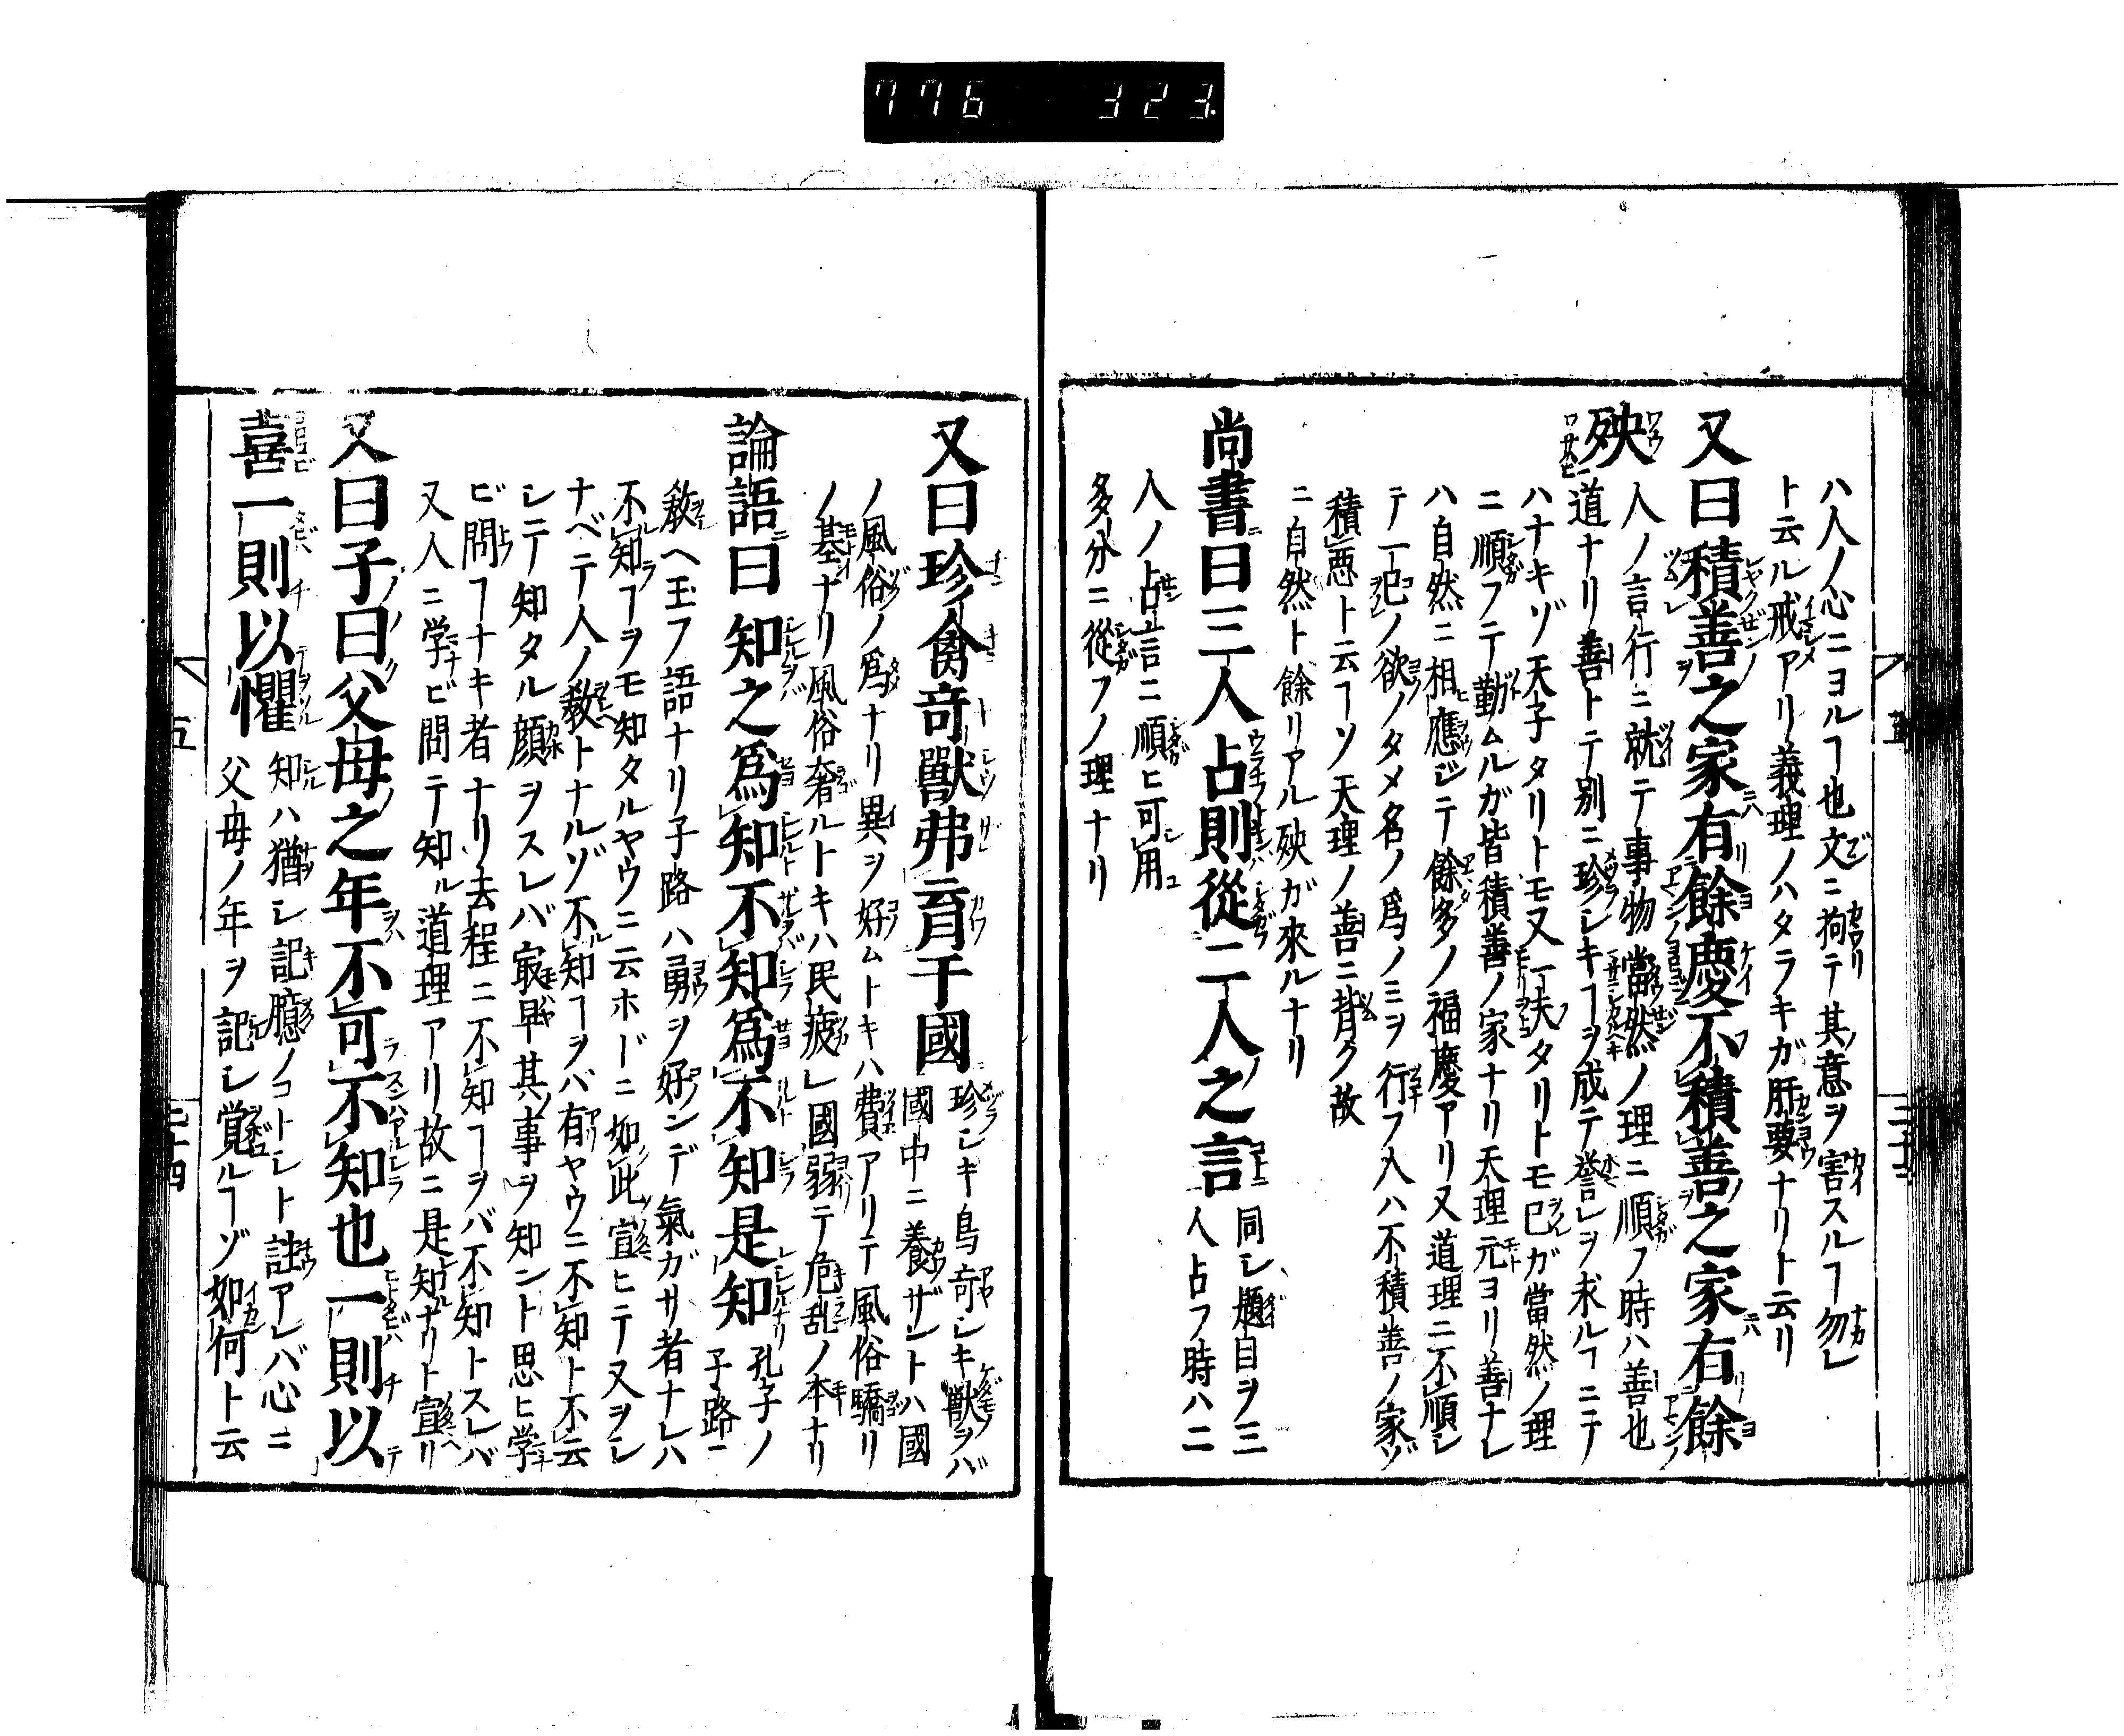 776 323
ハ人ノ心ニヨルヿ也文ニ拘テ其意ヲ害スルヿ勿レ
ト云ル戒アリ義理ノハタラキガ肝要ナリト云リ
又曰積善之家有餘慶不積善之家有餘
殃
人ノ言行ニ就テ事物當然ノ理ニ順フ時ハ善也
道ナリ善トテ別ニ珍レキヿヲ成テ誉レヲ求ルヿニテ
ハナキゾ天子タリトモ又一夫タリトモ己ガ當然ノ理
ニ順フテ勤ムルガ皆積善ノ家ナリ天理元ヨリ善ナレ
ハ自然ニ相應ジテ餘多ノ福慶アリ又道理ニ不順レ
テ一己ノ欲ノタメ名ノ為ノミヲ行フ人ハ不積善ノ家ゾ
積悪ト云ヿソ天理ノ善ニ背ク故
ニ自然ト餘リアル殃ガ來ルナリ
尚書曰三人占則從二人之言
同レ題目ヲ三
人占フ時ハ二
人ノ占言ニ順ヒ可用
多分ニ從フノ理ナリ
又曰珍禽奇獸弗育于國
珍レキ鳥奇レキ獣ヲバ
國中ニ養ザレトハ國
ノ風俗ノ為ナリ異ヲ好ムトキハ費アリテ風俗驕リ
ノ基ナリ風俗奢ルトキハ民疲レ國弱テ危乱ノ本ナリ
論語曰知之為知不知為不知是知
孔子ノ
子路ニ
教ヘ玉フ語ナリ子路ハ勇ヲ好ンデ氣ガサ者ナレハ
不知ヿヲモ知タルヤウニ云ホドニ如此宣ヒテ又ヲレ
ナベテ人ノ教トナルゾ不知ヿヲバ有ヤウニ不知ト不云
レテ知タル顔ヲスレバ最早其事ヲ知ント思ヒ学
ビ問ヿナキ者ナリ去程ニ不知ヿヲバ不知トスレバ
又人ニ学ビ問テ知ル道理アリ故ニ是知ナリト宣リ
又曰子曰父母之年不可不知也一則以
喜一則以懼
知ハ猶レ記臆ノコトレト註アレバ心ニ
父母ノ年ヲ記レ覚ルヿゾ如何ト云